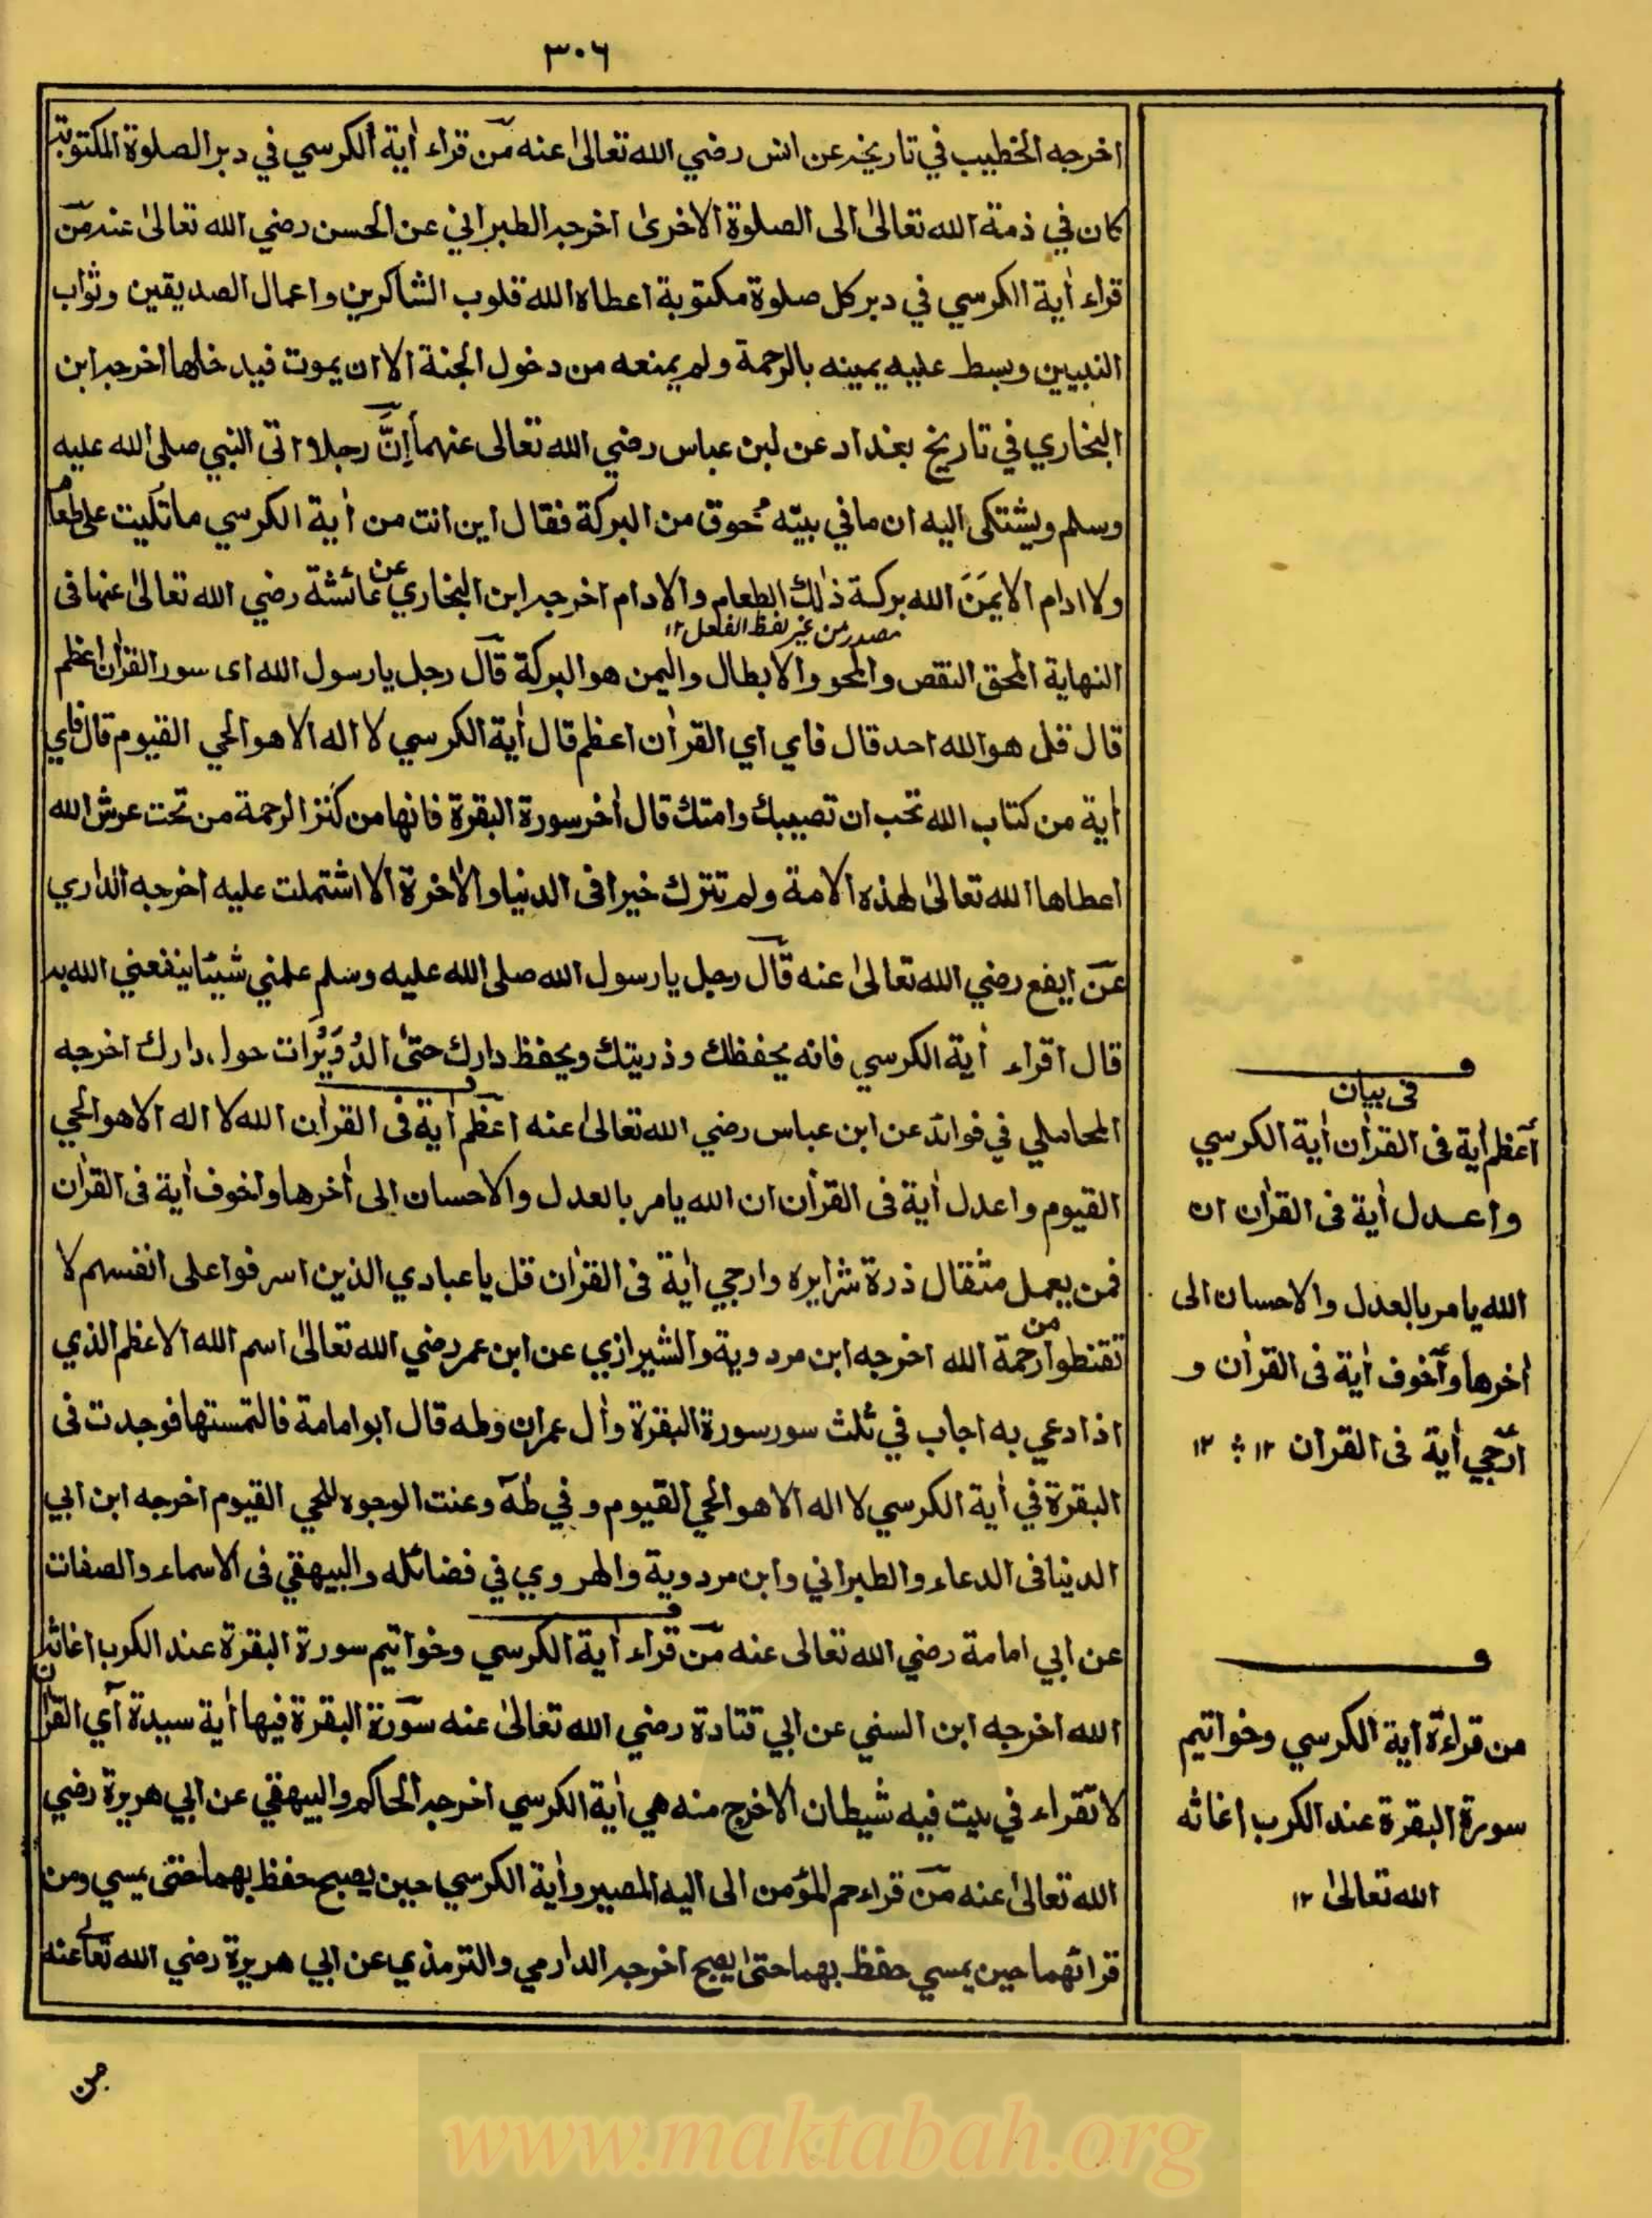 ٣٠٦
اخرجه الخطيب في تاريخه عن انس رضي الله تعالىٰ عنه من قراء أية الكرسي في دبر الصلوة المكتوبة
كان في ذمة الله تعالىٰ الى الصلوة الاخرىٰ اخرجه الطبراني عن الحسن رضي الله تعالىٰ عنه من
قراء أية الكرسي في دبر كل صلوة مكتوبة اعطاه الله قلوب الشاكرين واعمال الصديقين وثواب
النبيين وبسط عليه يمينه بالرحمة ولم يمنعه من دخول الجنة الا ان يموت فيدخلها اخرجه ابن
البخاري في تاريخ بغداد عن ابن عباس رضي الله تعالى عنهما إنّ رجلا اتى النبي صلى الله عليه
وسلم ويشتكى اليه ان ما في بيته محوق من البركة فقال اين انت من أية الكرسي ما تليت على طعام
ولا ادام الا يمَنَ الله بركة ذٰلك الطعام والادام اخرجه ابن البخاري عن عائشة رضي الله تعالىٰ عنها فى
مصدر من غير لفظ الفعل ١٢
النهاية المحق النقص والمحو والابطال واليمن هو البركة قال رجل يا رسول الله اى سور القرأن اعظم
قال قل هو الله احد قال فاي اي القرأن اعظم قال أية الكرسي لا اله الا هو الحي القيوم قال فاي
أية من كتاب الله تحب ان تصيبك وامتك قال أخر سورة البقرة فانها من كنز الرحمة من تحت عرش الله
اعطاها الله تعالىٰ لهذه الامة ولم تترك خيرا فى الدنيا والأخرة الا اشتملت عليه اخرجه الداري
عن ايفع رضي الله تعالىٰ عنه قال رجل يا رسول الله صلى الله عليه وسلم علمني شيئا ينفعني الله به
قال اقراء أية الكرسي فانه يحفظك وذريتك ويحفظ دارك حتىٰ الدُوَيْرات حول دارك اخرجه
المحاملي في فوائد عن ابن عباس رضي الله تعالىٰ عنه اعظم أية فى القرأن الله لا اله الا هو الحي
القيوم واعدل أية فى القرأن ان الله يامر بالعدل والاحسان الى أخرها واخوف أية فى القرأن
فمن يعمل مثقال ذرة شرا يره وارجي أية فى القرأن قل يا عبادي الذين اسرفوا على انفسهم لا
تقنطوا من رحمة الله اخرجه ابن مردوية والشيرازي عن ابن عمر رضي الله تعالىٰ اسم الله الاعظم الذي
اذا دعي به اجاب في ثلث سور سورة البقرة وأل عمران وطه قال ابو امامة فالتمستها فوجدت فى
البقرة في أية الكرسي لا اله الا هو الحي القيوم و في طه وعنت الوجوه للحي القيوم اخرجه ابن ابي
الدنيا فى الدعاء والطبراني وابن مردوية والهروي في فضائله والبيهقي فى الاسماء والصفات
عن ابي امامة رضي الله تعالى عنه من قراء أية الكرسي وخواتيم سورة البقرة عند الكرب اغاثه
الله اخرجه ابن السني عن ابي قتادة رضي الله تعالىٰ عنه سورة البقرة فيها أية سيدة آي القرأن
لا تقراء في بيت فيه شيطان الا خرج منه هي أية الكرسي اخرجه الحاكم والبيهقي عن ابي هريرة رضي
الله تعالىٰ عنه من قراء حم المؤمن الى اليه المصير وأية الكرسي حين يصبح حفظ بهما حتى يمسي ومن
قرائهما حين يمسي حفظ بهما حتىٰ يصبح اخرجه الدارمي والترمذي عن ابي هريرة رضي الله تعالى عنه
فى بيان
أعظم أية فى القرأن أية الكرسي
واعدل أية فى القرأن ان
الله يامر بالعدل والاحسان الى
أخرها وأخوف أية فى القرأن و
أرجي أية فى القرأن ١٢ ؞ ١٢
من قراءة أية الكرسي وخواتيم
سورة البقرة عند الكرب اغاثه
الله تعالىٰ ١٢
www.maktabah.org